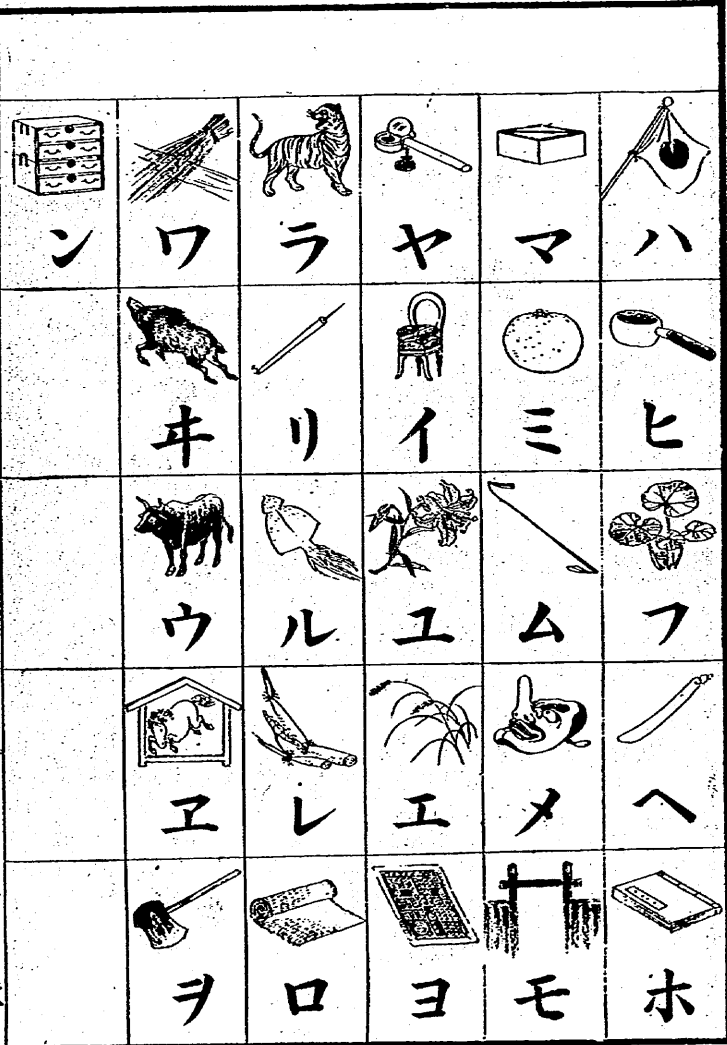 ハ
ヒ
フ
ヘ
ホ
マ
ミ
ム
メ
モ
ヤ
イ
ユ
エ
ヨ
ラ
リ
ル
レ
ロ
ワ
ヰ
ウ
ヱ
ヲ
ン